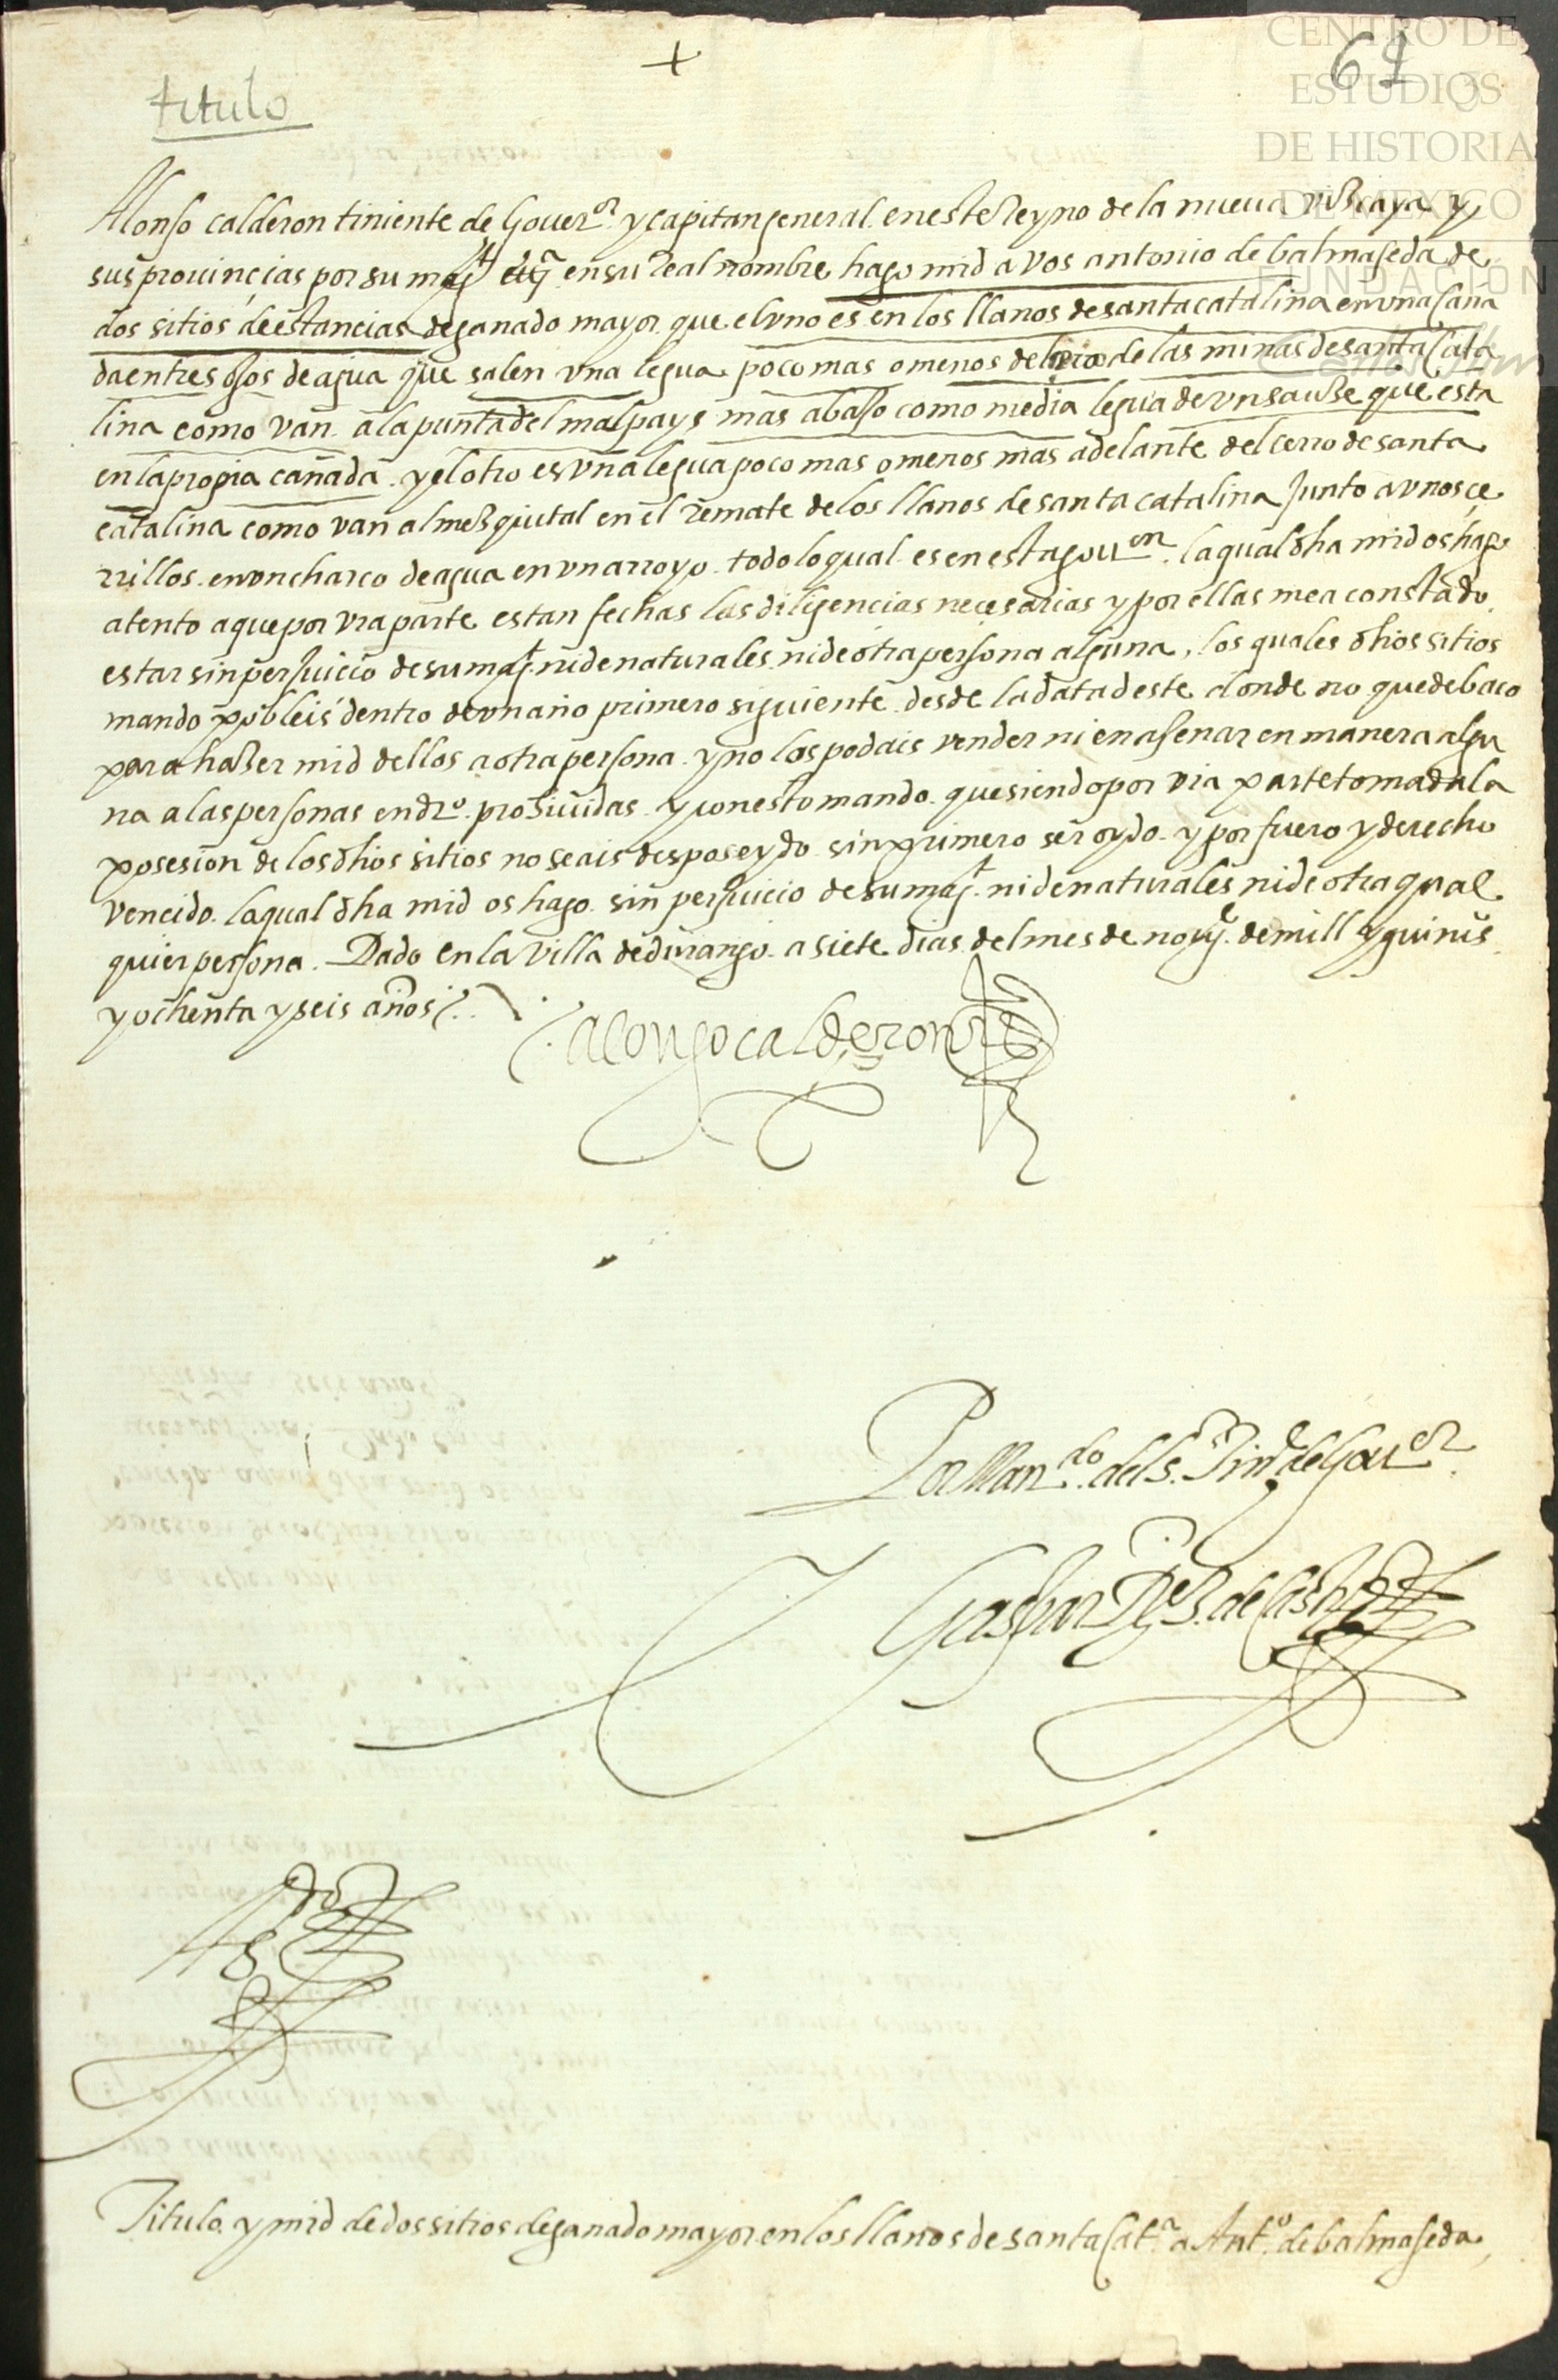 +
61
CENTRO DE
ESTUDIOS
DE HISTORIA
DE MEXICO
FUNDACIÓN
titulo
Alonso calderon tiniente de Gouer.or y capitan general en este Reyno de la nueua vizcaya y
sus prouinçias por su magt en su Real nombre hago mrd a vos antonio de balmaseda de
dos sitios de estancias de ganado mayor que el vno es en los llanos de santa catalina en vna caña
da en tres ojos de agua que salen vna legua poco mas o menos de las minas de santa Cata
lina como van a la punta del malpays mas abajo como media legua de vn sauze que esta
en la propia cañada y el otro es vna legua poco mas o menos mas adelante del cerro de santa
catalina como van al mezquital en el Remate de los llanos de santa catalina Junto a vnos çe
rrillos en vn charco de agua en vn arroyo todo lo qual es en esta gouon. la qual dha mrd os hago
atento a que por vra parte estan fechas las diligencias neçesarias y por ellas me a constado
estar sin perjuicio de su magt. ni de naturales ni de otra persona alguna, los quales dhos sitios
mando pobleis dentro de vn año primero siguiente desde la data deste donde no quede baco
para hazer mrd dellos a otra persona y no los podais vender ni enajenar en manera algu
na a las personas en dro. prohiuidas y con esto mando que siendo por vra parte tomada la
posesion de los dhos sitios no seais desposeydo sin primero ser oydo y por fuero y derecho
vencido. la qual dha mrd os hago sin perjuicio de su magt. ni de naturales ni de otra qual
quier persona. Dado en la villa de durango a siete dias del mes de nouye. de mill y quinios
y ochenta y seis años
alonso calderon
Por Man.do del s. Tine. de Gouor.
Gaspar Rs. de Castro
Titulo y mrd de dos sitios de ganado mayor en los llanos de santa Cat.a a Ant.o de balmaseda